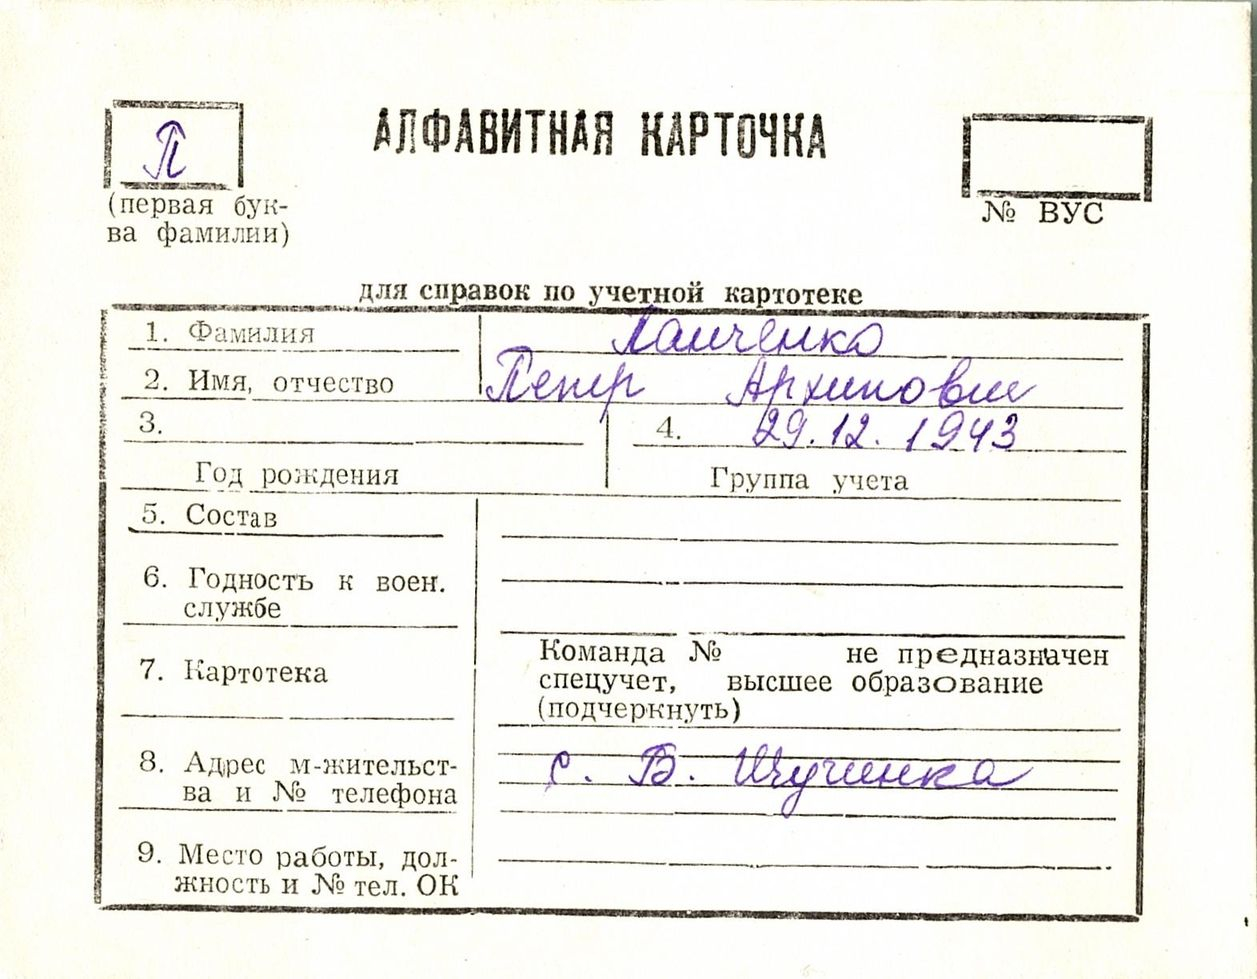 П
АЛФАВИТНАЯ КАРТОЧКА
(первая бук-
ва фамилии)
№ ВУС
для справок по учетной картотеке
1. Фамилия Панченко
2. Имя, отчество Петр Архипович
3. 4. 29.12.1943
Год рождения Группа учета
5. Состав
6. Годность к воен.
службе
7. Картотека
Команда № не предназначен
спецучет, высшее образование
(подчеркнуть)
8. Адрес м-жительст-
ва и № телефона
с. В. Щученка
9. Место работы, дол-
жность и № тел. ОК